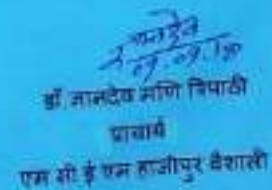 डॉ. ज्ञानदेव मणि त्रिपाठी
प्राचार्य
एम सी ई एम हाजीपुर वैशाली